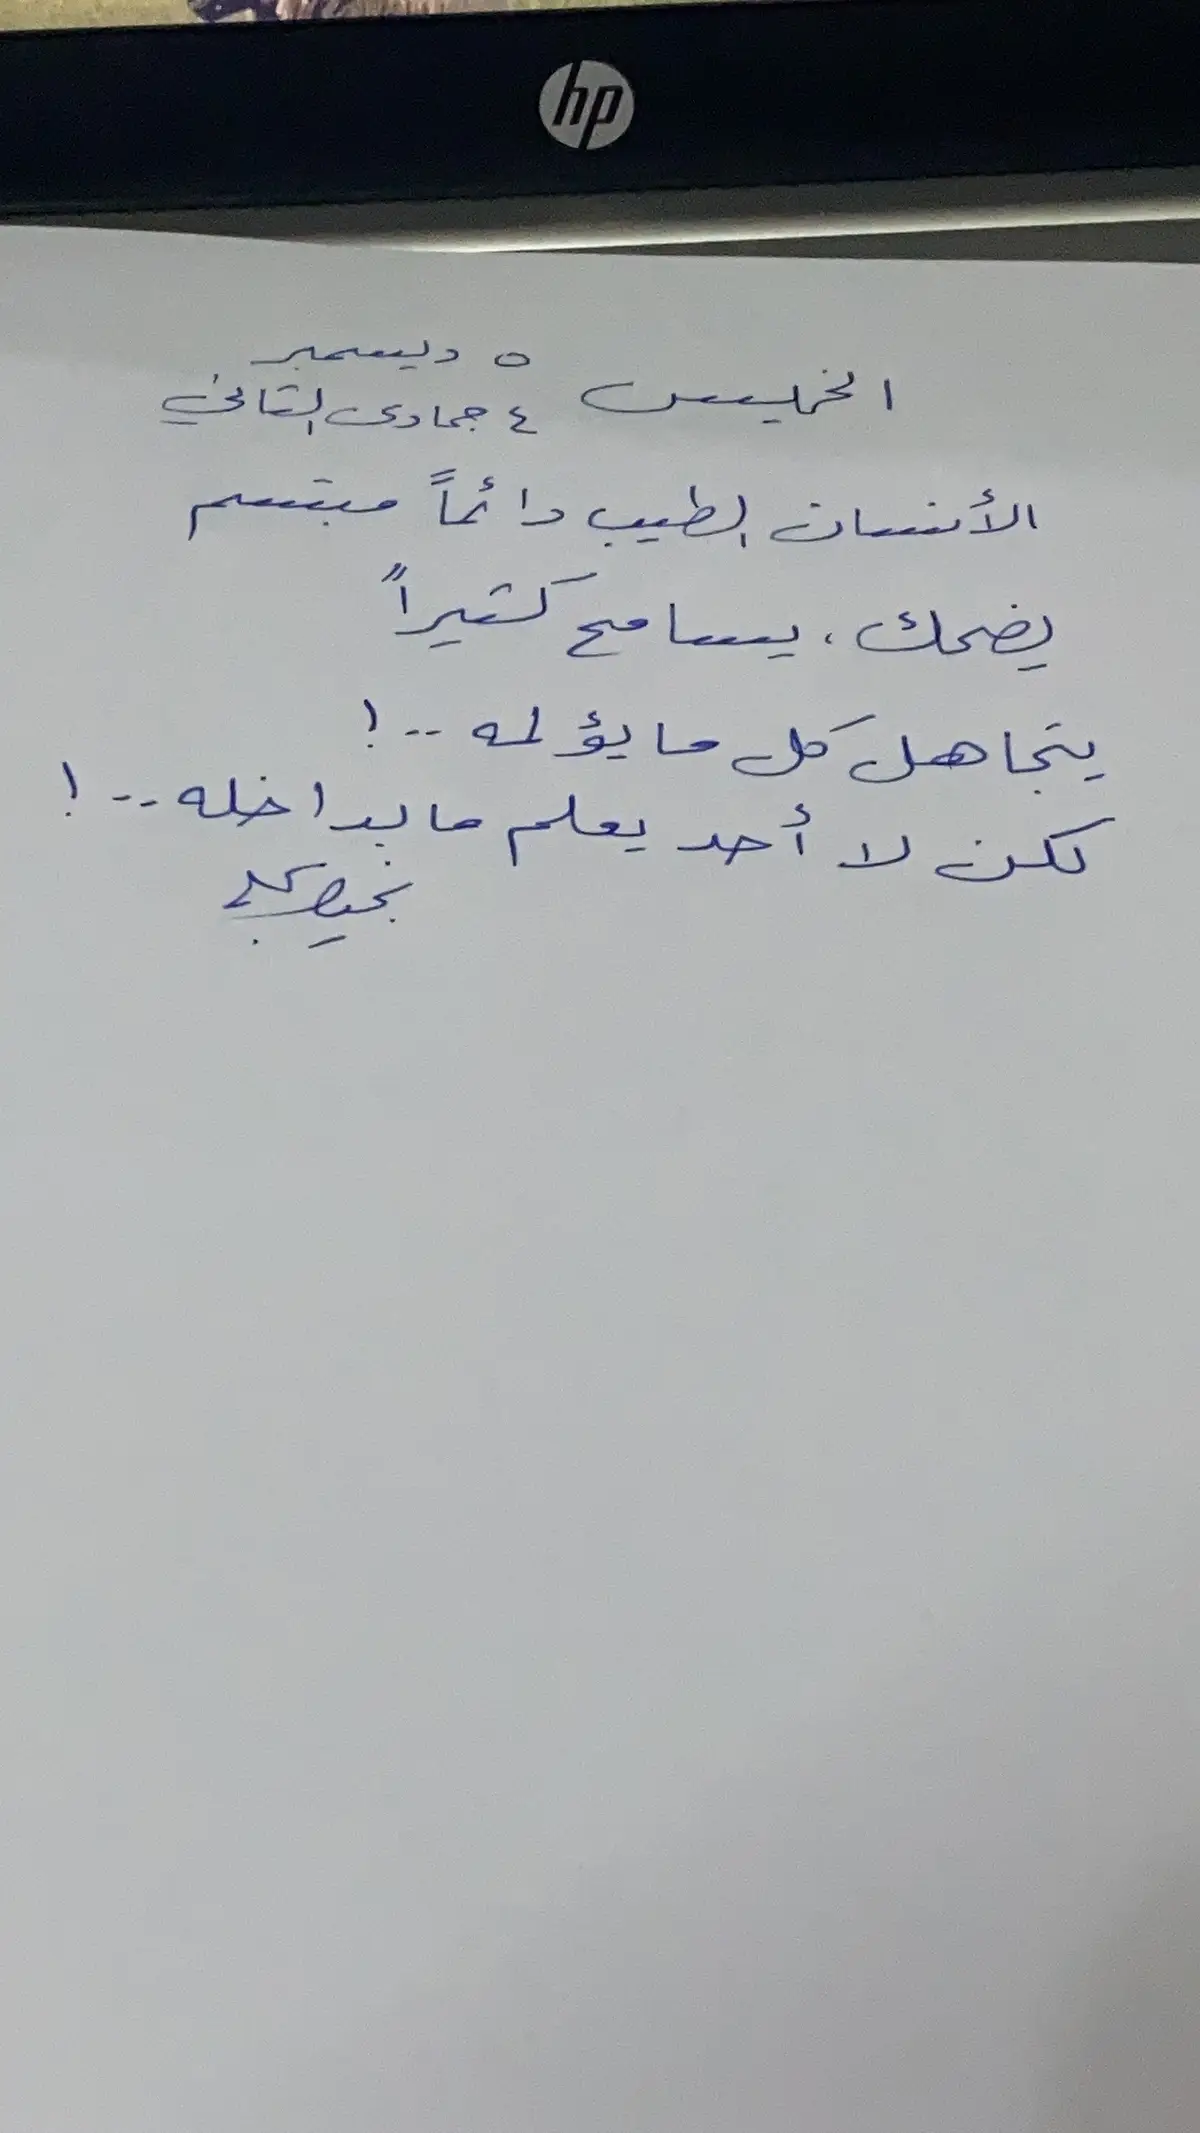 hp
الخميس ٥ ديسمبر
٤ جمادى الثاني
الأنسان الطيب دائماً مبتسم
يضحك، يسامح كثيراً
يتجاهل كل ما يؤلمه ..!
لكن لا أحد يعلم ما بداخله ..!